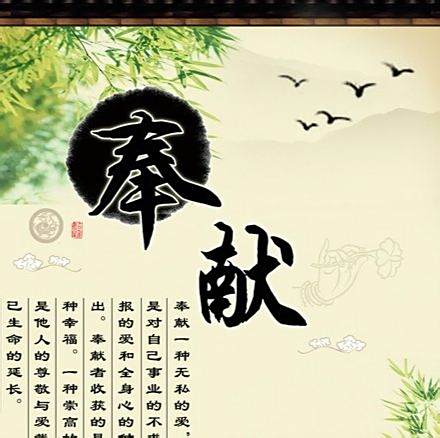 奉献
奉献一种无私的爱，
是对自己事业的不求
报的爱和全身心的
出。奉献者收获的是
种幸福。一种崇高的
是他人的尊敬与爱戴
己生命的延长。